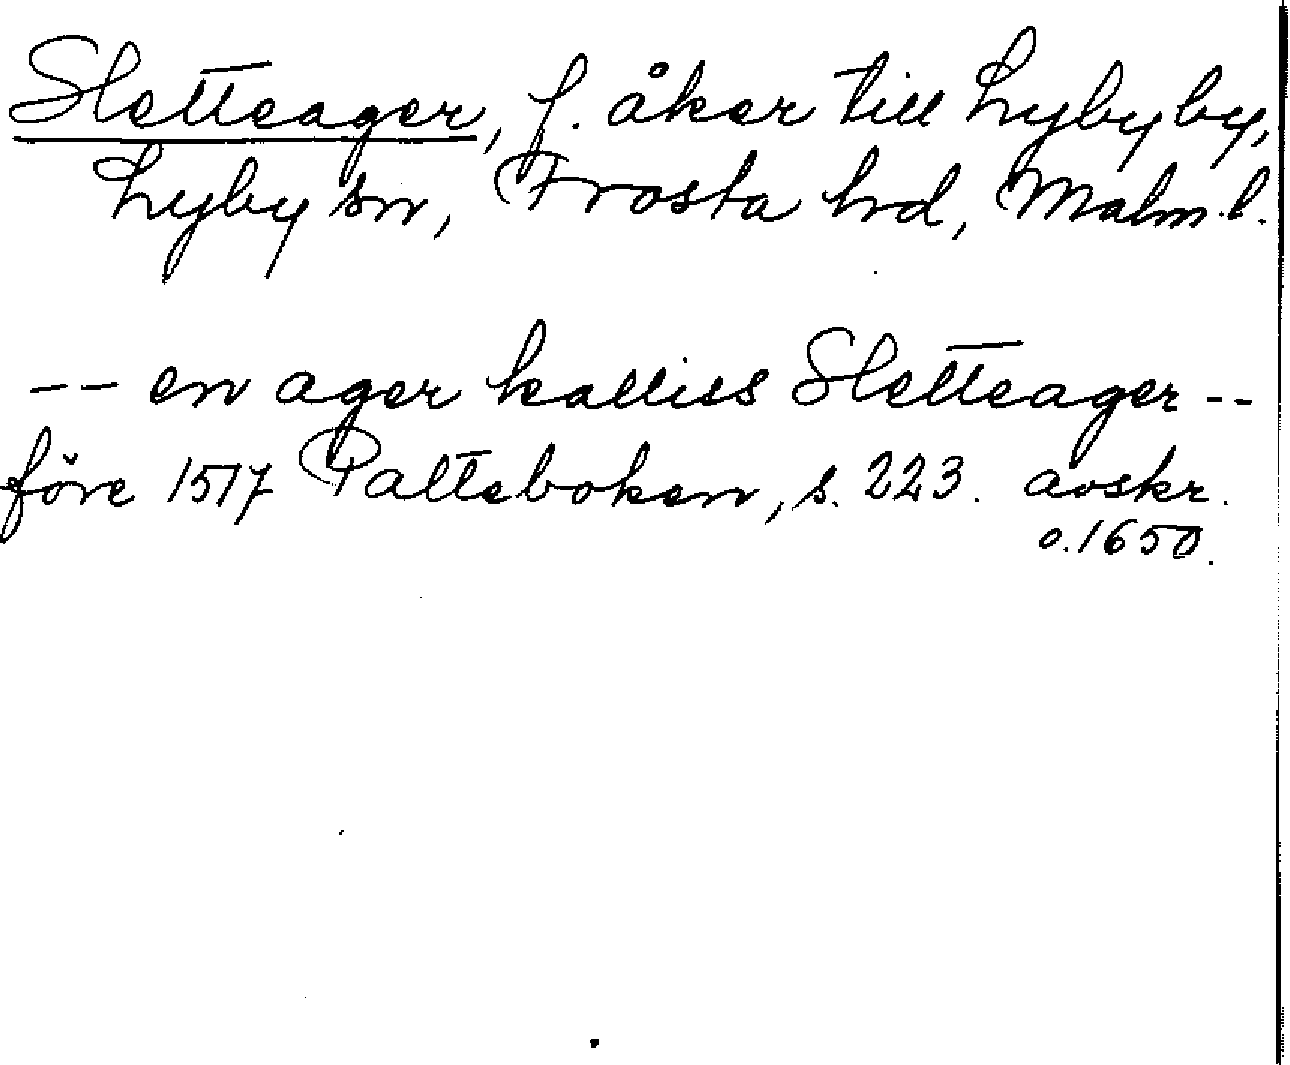 Sletteager, f. åker till Lyby by,
Lyby sn, Frosta hd, Malm. l.
-- en ager kalliss Sletteager --
före 1517 Palteboken, s. 223. avskr.
o. 1650.